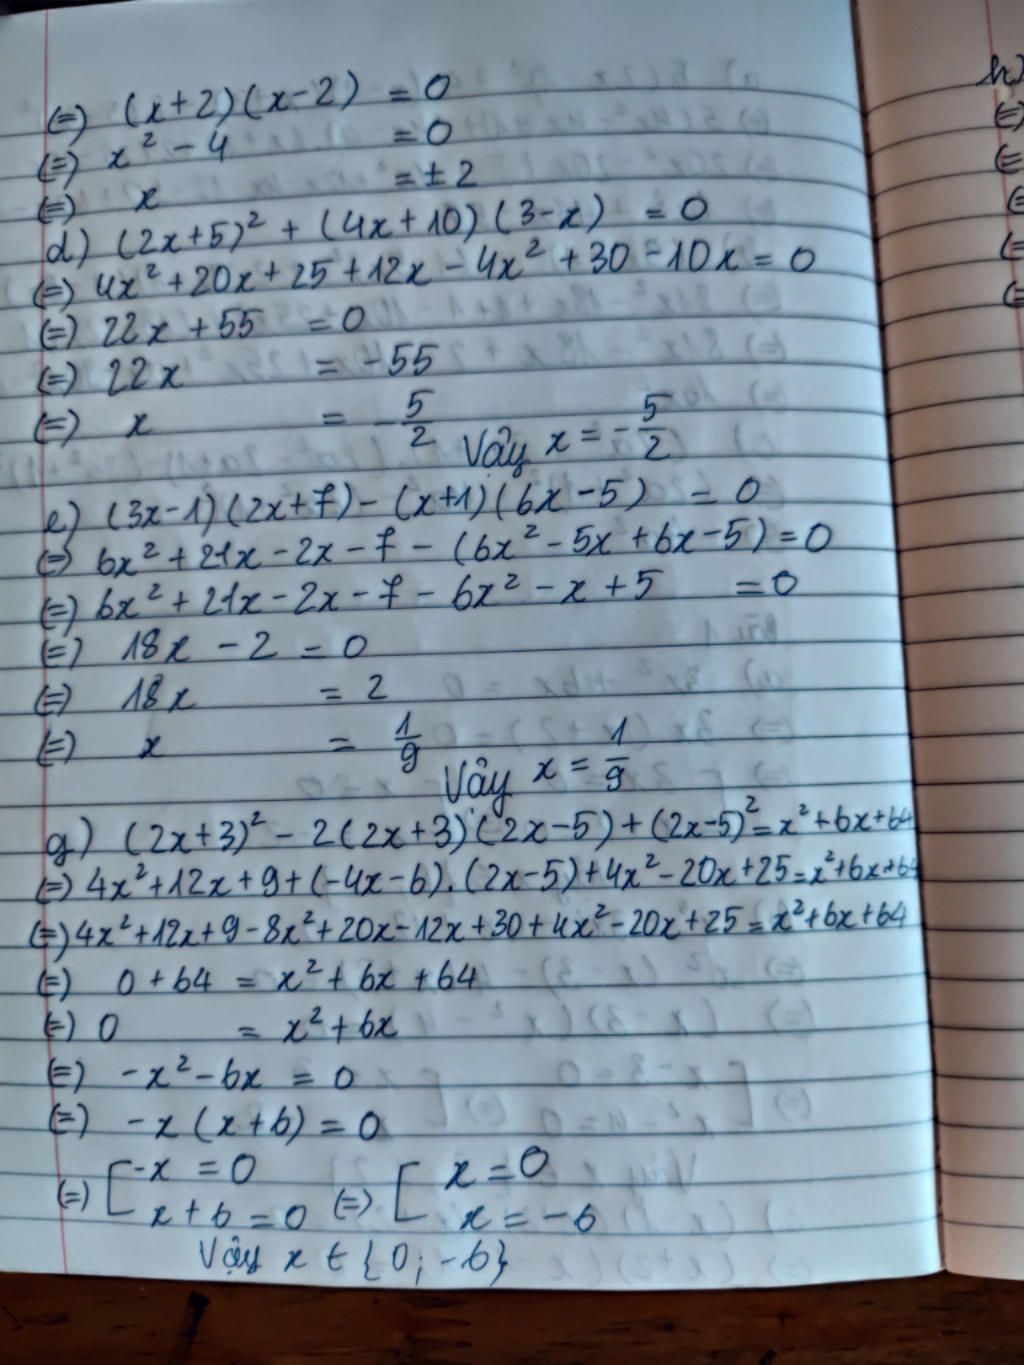 (=) (x+2)(x-2) = 0
(=) x² - 4 = 0
(=) x = ±2
d) (2x+5)² + (4x+10)(3-x) = 0
(=) 4x² + 20x + 25 + 12x - 4x² + 30 - 10x = 0
(=) 22x + 55 = 0
(=) 22x = -55
(=) x = -5/2
Vậy x = -5/2
e) (3x-1)(2x+7) - (x+1)(6x-5) = 0
(=) 6x² + 21x - 2x - 7 - (6x² - 5x + 6x - 5) = 0
(=) 6x² + 21x - 2x - 7 - 6x² - x + 5 = 0
(=) 18x - 2 = 0
(=) 18x = 2
(=) x = 1/9
Vậy x = 1/9
g) (2x+3)² - 2(2x+3)(2x-5) + (2x-5)² = x² + 6x + 64
(=) 4x² + 12x + 9 + (-4x-6).(2x-5) + 4x² - 20x + 25 = x² + 6x + 64
(=) 4x² + 12x + 9 - 8x² + 20x - 12x + 30 + 4x² - 20x + 25 = x² + 6x + 64
(=) 0 + 64 = x² + 6x + 64
(=) 0 = x² + 6x
(=) -x² - 6x = 0
(=) -x(x+6) = 0
(=) [ -x = 0 (=) [ x = 0
x + 6 = 0 x = -6
Vậy x ∈ {0; -6}
h)
(=)
(=
(=
(=
(=